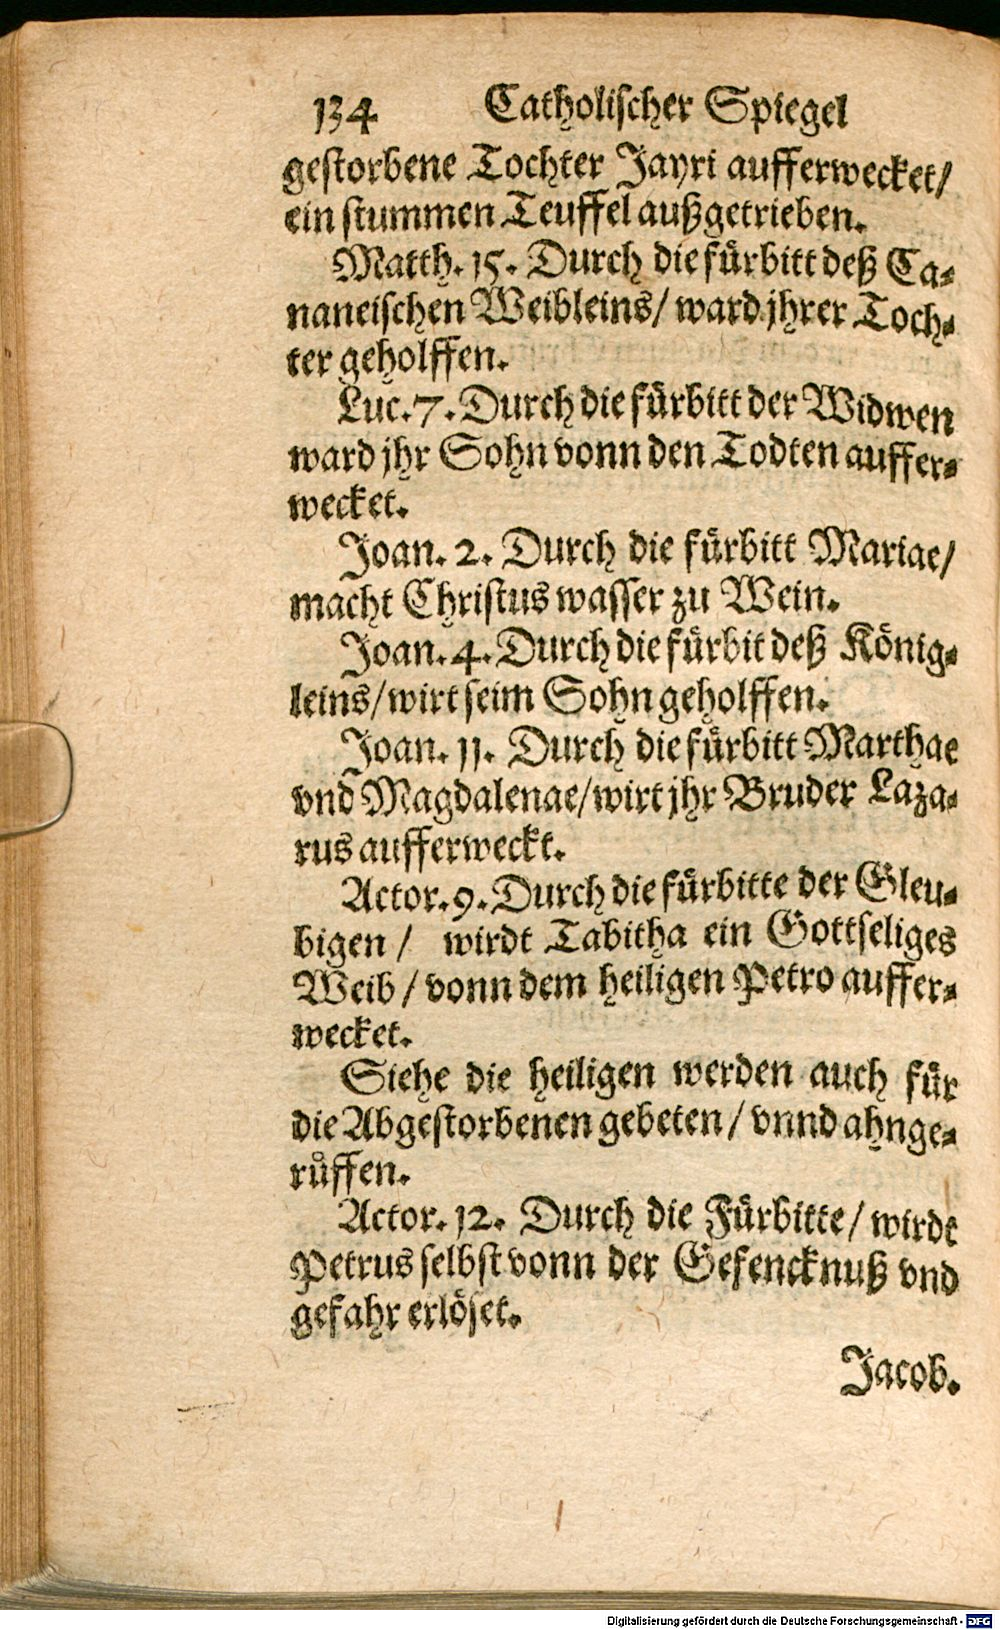 134 Catholischer Spiegel
gestorbene Tochter Jayri aufferwecket/
ein stummen Teuffel außgetrieben.
Matth. 15. Durch die fürbitt deß Ca-
naneischen Weibleins/ ward jhrer Toch-
ter geholffen.
Luc. 7. Durch die fürbitt der Widwen
ward jhr Sohn vonn den Todten auffer-
wecket.
Joan. 2. Durch die fürbitt Mariae/
macht Christus wasser zu Wein.
Joan. 4. Durch die fürbit deß König-
leins/ wirt seim Sohn geholffen.
Joan. 11. Durch die fürbitt Marthae
vnd Magdalenae/ wirt jhr Bruder Laza-
rus aufferweckt.
Actor. 9. Durch die fürbitte der Gleu-
bigen / wirdt Tabitha ein Gottseliges
Weib / vonn dem heiligen Petro auffer-
wecket.
Siehe die heiligen werden auch für
die Abgestorbenen gebeten / vnnd ahnge-
růffen.
Actor. 12. Durch die Fürbitte / wirdt
Petrus selbst vonn der Gefencknuß vnd
gefahr erlöset.
Jacob.
Digitalisierung gefördert durch die Deutsche Forschungsgemeinschaft - DFG